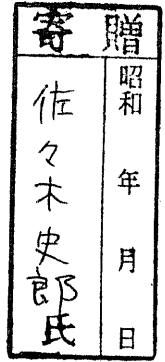 寄贈
昭和　年　月　日
佐々木史郎氏